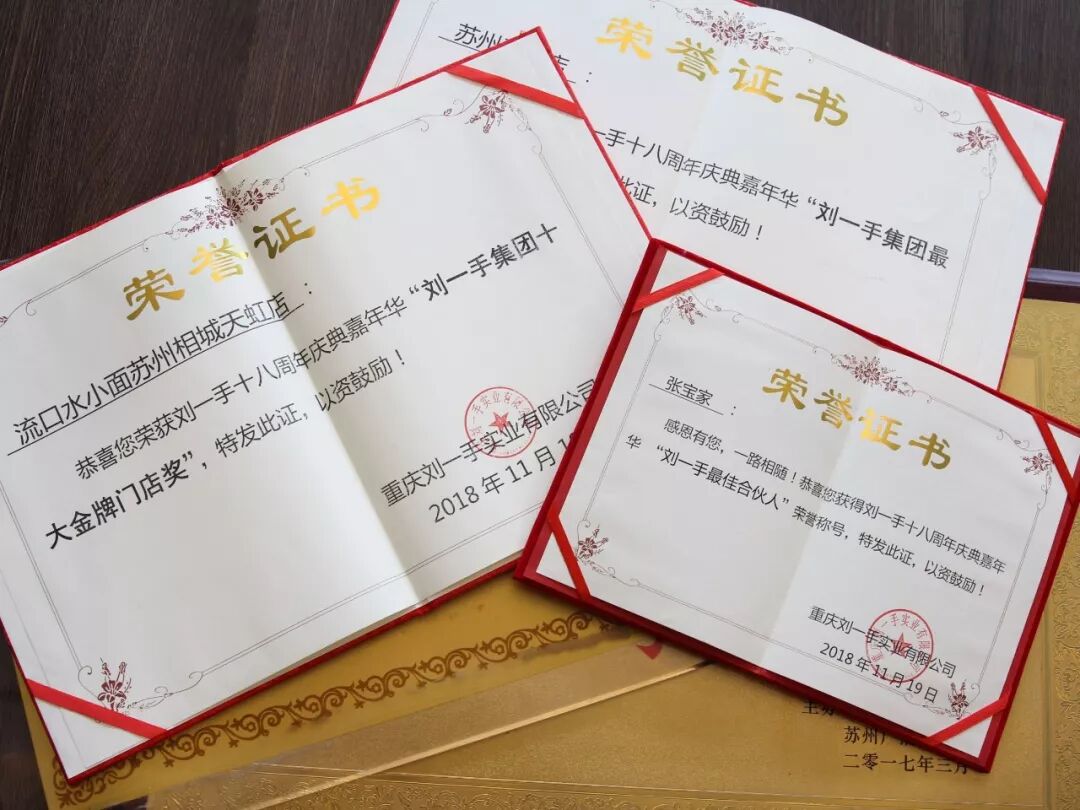 荣誉证书
苏州
店：
一手十八周年庆典嘉年华“刘一手集团最
此证，以资鼓励！
荣誉证书
流口水小面苏州相城天虹店：
恭喜您荣获刘一手十八周年庆典嘉年华“刘一手集团十
大金牌门店奖”，特发此证，以资鼓励！
重庆刘一手实业有限公司
2018年11月1
荣誉证书
张宝家：
感恩有您，一路相随！恭喜您获得刘一手十八周年庆典嘉年
华“刘一手最佳合伙人”荣誉称号，特发此证，以资鼓励！
重庆刘一手实业有限公司
2018年11月19日
主办
苏州广
二零一七年三月